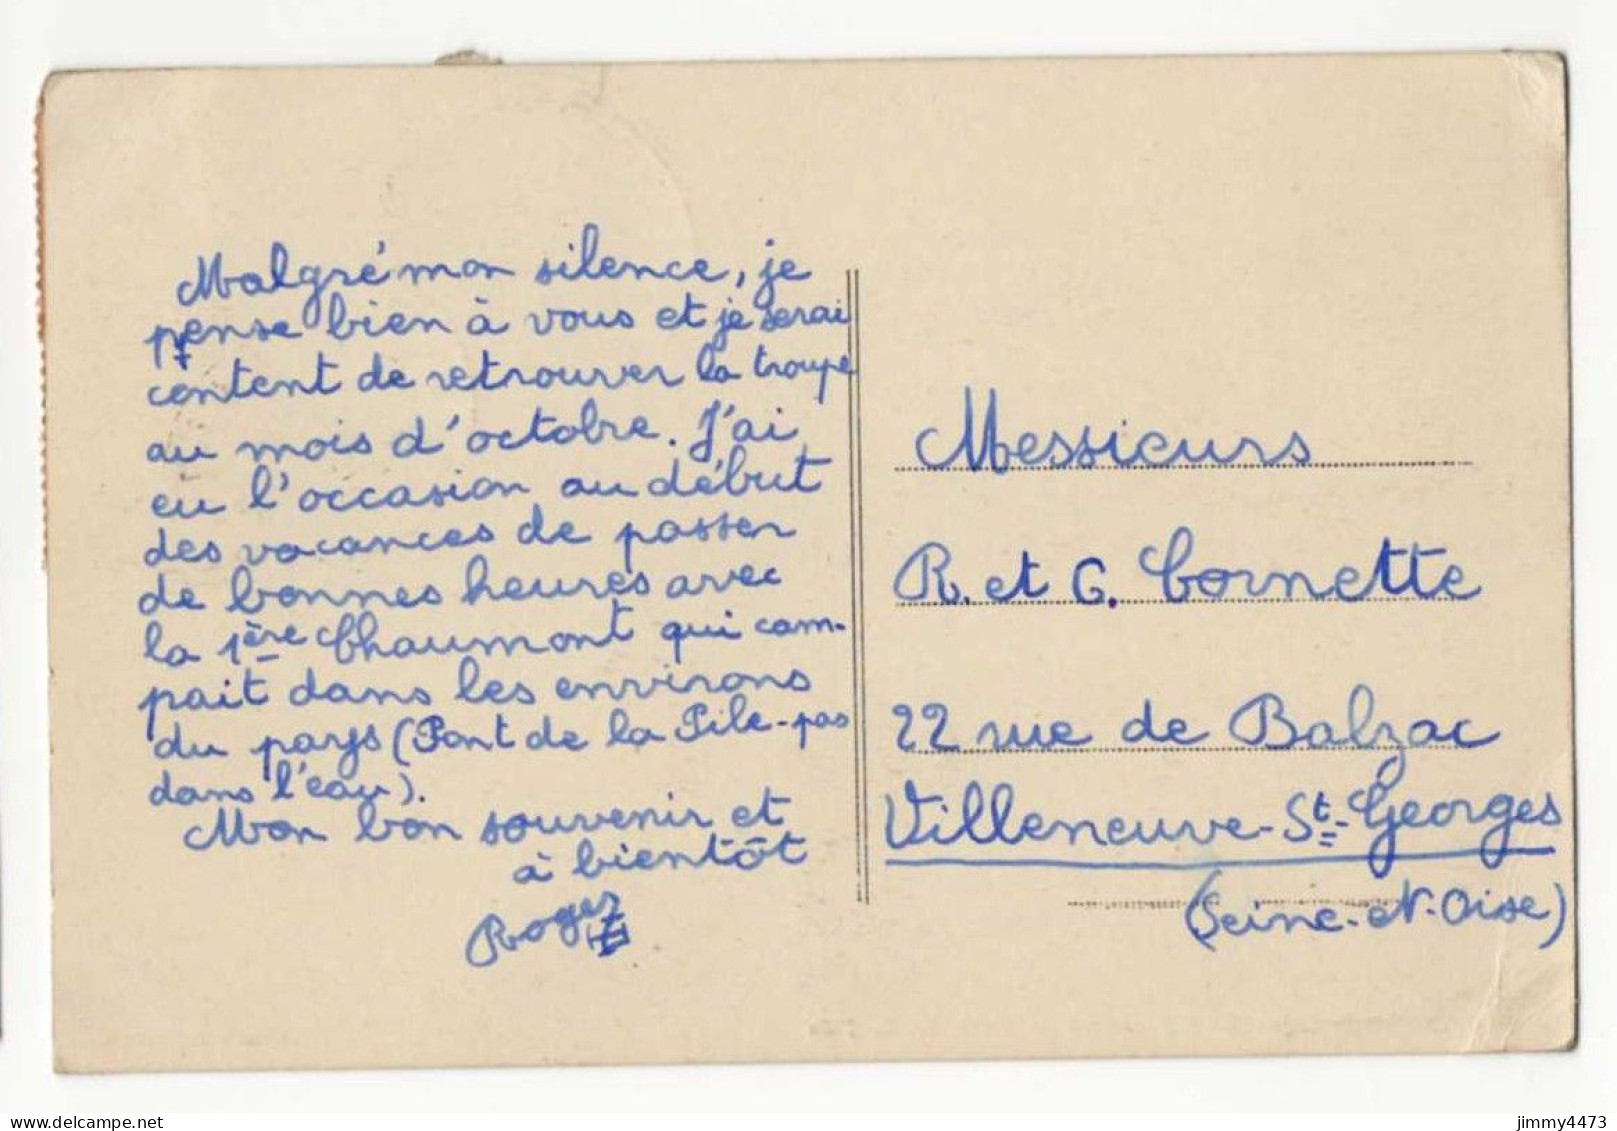 Malgré mon silence, je
pense bien à vous et je serai
content de retrouver la troupe
au mois d'octobre. J'ai
eu l'occasion au début
des vacances de passer
de bonnes heures avec
la 1ère Chaumont qui cam-
pait dans les environs
du pays (Pont de la Pile - pas
dans l'eau).
Mon bon souvenir et
à bientôt
Roger
Messieurs
R. et G. Cornette
22 rue de Balzac
Villeneuve-St-Georges
(Seine-et-Oise)
delcampe.net
jimmy4473